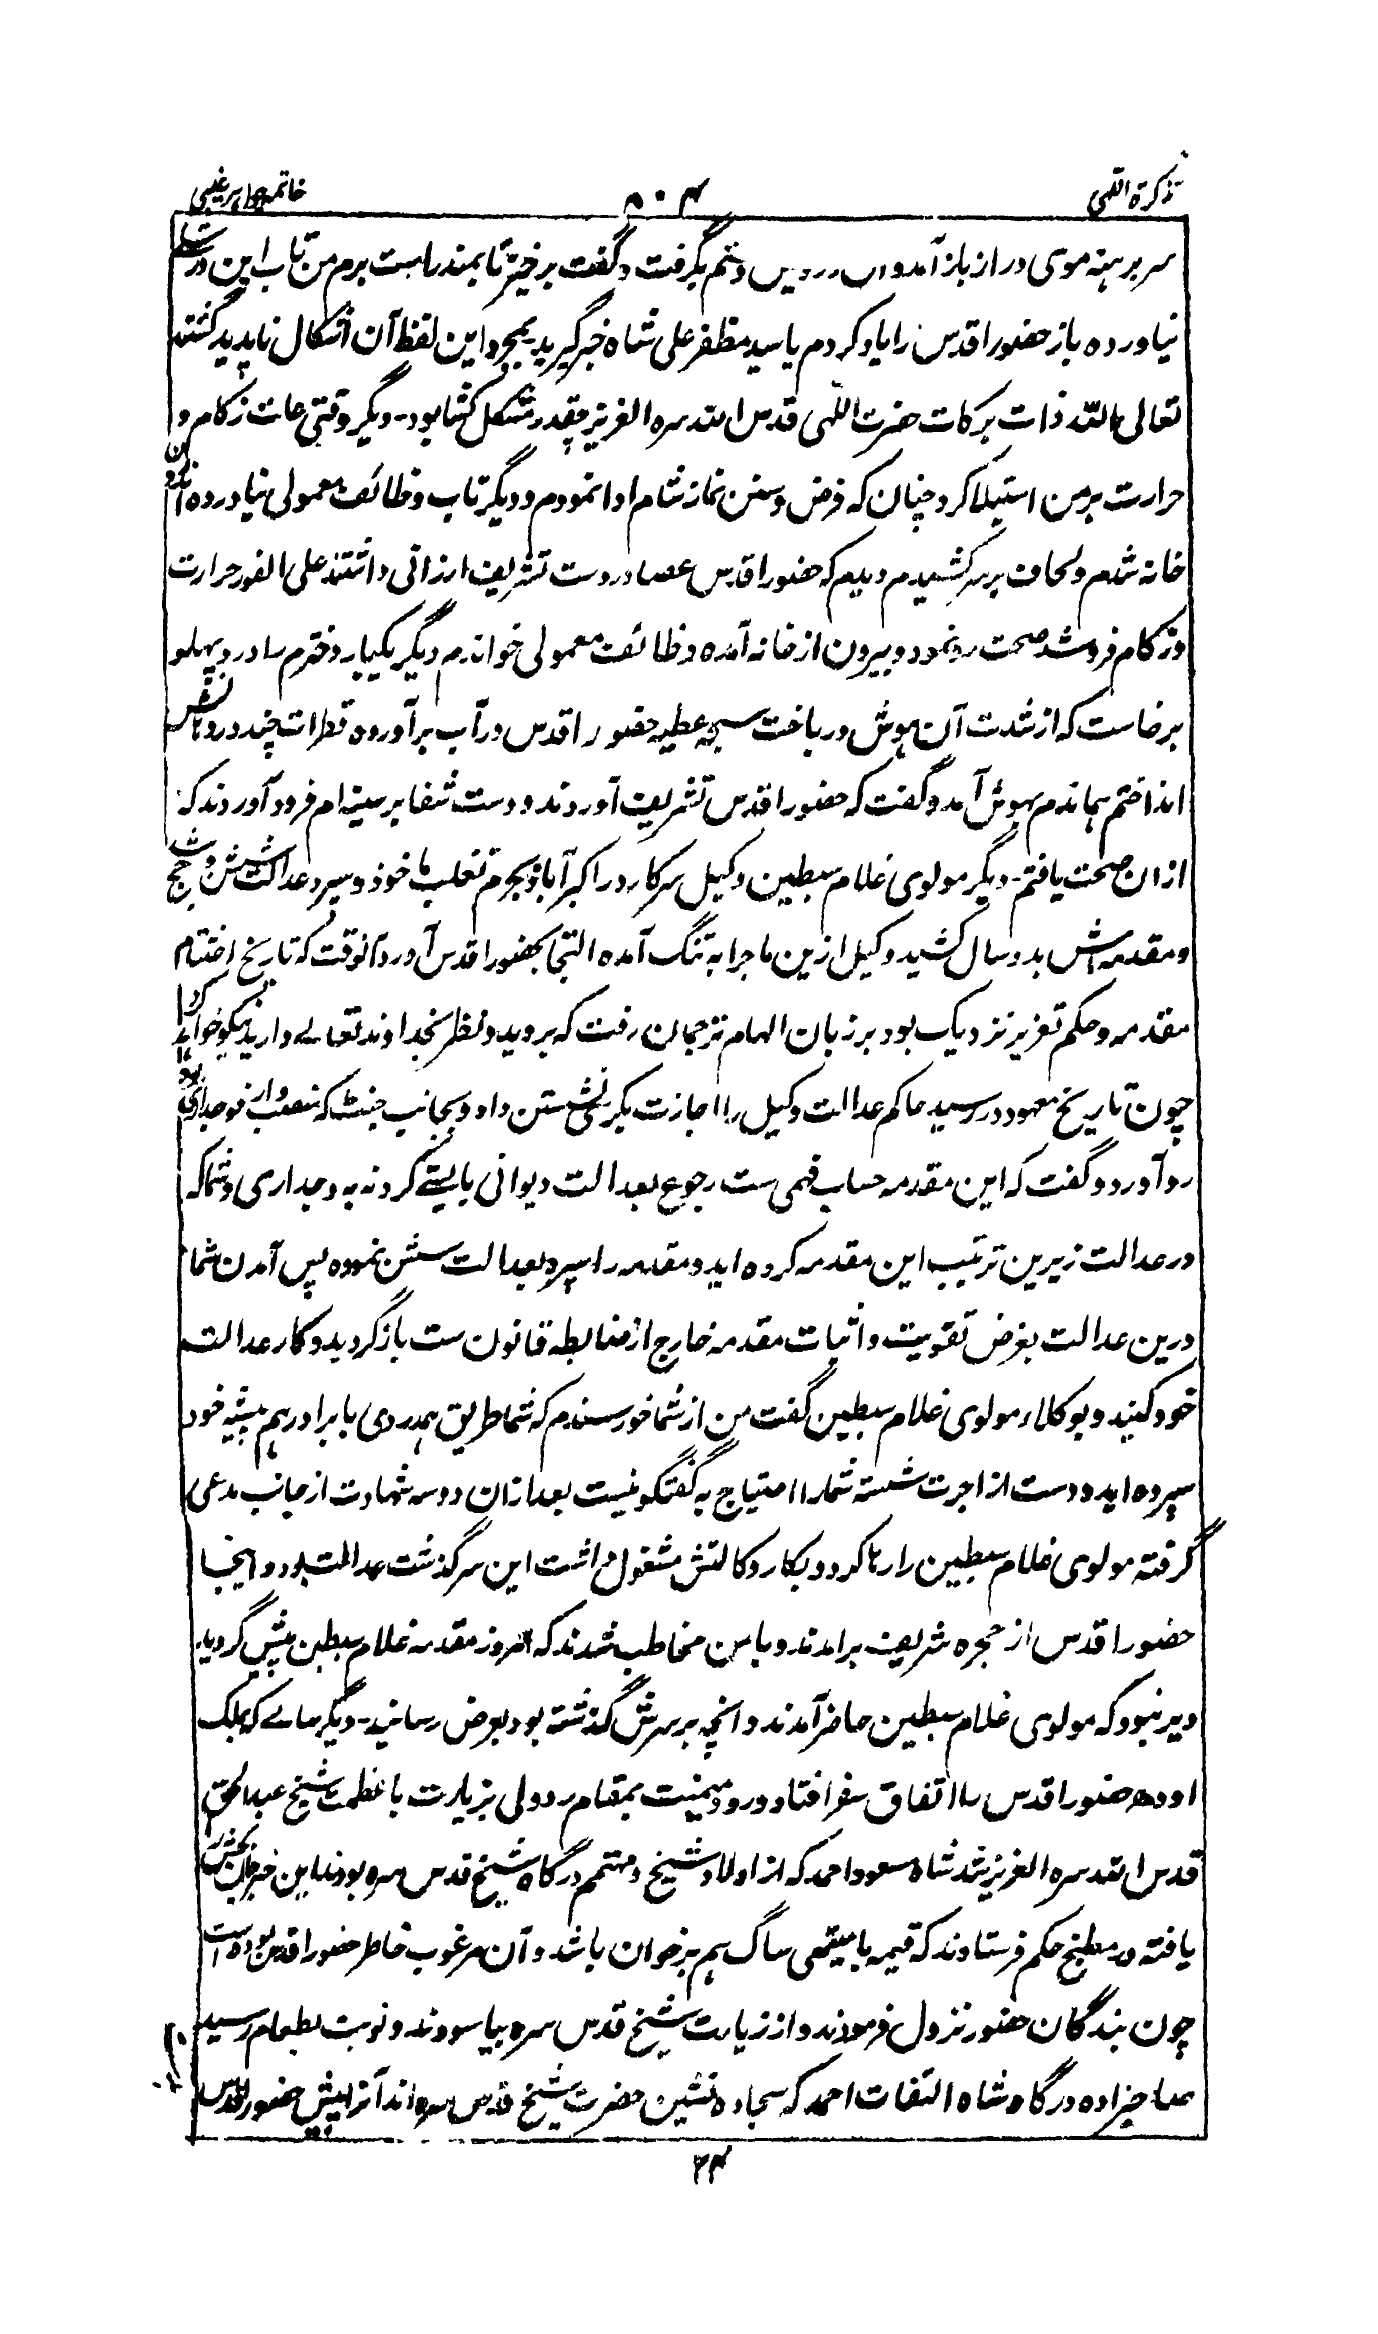 تذکرة اللهی
خاتمه جواهر غیبی
سر برهنه موی دراز باز آمد و دستم بگرفت و گفت برخیز تا بمندراهت برم من تاب این
نیاورده باز حضور اقدس را یاد کردم یا سید مظفر علی شاه خبر گیرید بمجرد این لفظ آن اشکال ناپدید گشتند
تعالی الله ذات برکات حضرت اللهی قدس الله سره العزیز چقدر مشکل کشا بود - دیگر وقتی زکام و
حرارت بر من استیلا کرد چنان که فرض و سنن نماز شام ادا نمودم و دیگر تاب وظائف معمولی نیاورده اندرون
خانه شدم و لحاف بر سر کشیدم دیدم که حضور اقدس عصا در دست تشریف ارزانی داشتند علی الفور حرارت
و زکام فرو شد صحت رو نمود و بیرون از خانه آمده وظائف معمولی خواندم دیگر یکبار دخترم را درد پهلو
برخاست که از شدت آن هوش در باخت سبحه عطیه حضور اقدس در آب برآورده قطرات چند در دهانش
انداختم هماندم بهوش آمد و گفت که حضور اقدس تشریف آوردند و دست شفا بر سینه ام فرود آوردند که
ازان صحت یافتم - دیگر مولوی غلام سبطین وکیل سرکار در اکبرآباد بجرم تغلب ماخوذ و سپرد عدالت شش و جج شد
و مقدمه اش بدو سال کشید وکیل ازین ماجرا به تنگ آمده التجا بحضور اقدس آورد آنوقت که تاریخ اختتام
مقدمه و حکم تعزیر نزدیک بود بر زبان الهام ترجمان رفت که بروید و نظر بخداوند تعالے دارید نیکو خواهد
چون تاریخ معهود در رسید حاکم عدالت وکیل را اجازت بکرسی نشستن داد و بجانب جنٹ که منصب دار فوجداری
رو آورد و گفت که این مقدمه حساب فهمی ست رجوع بعدالت دیوانی بایستے کرد نه به فوجداری و شما که
در عدالت زیرین ترتیب این مقدمه کرده اید و مقدمه را سپرد بعدالت سشن نموده پس آمدن شما
درین عدالت بغرض تقویت و اثبات مقدمه خارج از ضابطه قانون ست باز گردید و کار عدالت
خود کنید و بوکلاء مولوی غلام سبطین گفت من از شما خورسندم که شما طریق همدردی با برادر هم پیشه خود
سپرده اید و دست از اجرت شسته شما را احتیاج به گفتگو نیست بعد ازان دو سه شهادت از جانب مدعی
گرفته مولوی غلام سبطین را رها کرد و بکار وکالتش مشغول داشت این سرگذشت عدالت بود و اینجا
حضور اقدس از حجره شریف برآمدند و با من مخاطب شدند که امروز مقدمه غلام سبطین پیش گردید
دیر نبود که مولوی غلام سبطین حاضر آمدند و آنچه بر سرش گذشته بود بعرض رسانید - دیگر سالے که بملک
اودهه حضور اقدس را اتفاق سفر افتاد و ورود میمنت بمقام ردولی بزیارت با عظمت شیخ عبدالحق
قدس الله سره العزیز شد شاه مسعود احمد که از اولاد شیخ و مهتمم درگاه شیخ قدس سره بودند این خبر
یافته در مطبخ حکم فرستادند که قیمه با میتهی ساگ هم بر خوان باشد و آن مرغوب خاطر حضور اقدس بوده است
چون بندگان حضور نزول فرمودند و از زیارت شیخ قدس سره بیاسودند و نوبت بطعام رسید
صاحبزاده درگاه شاه التفات احمد که سجاده نشین حضرت شیخ قدس سره اند آنرا پیش حضور اقدس
۲۴